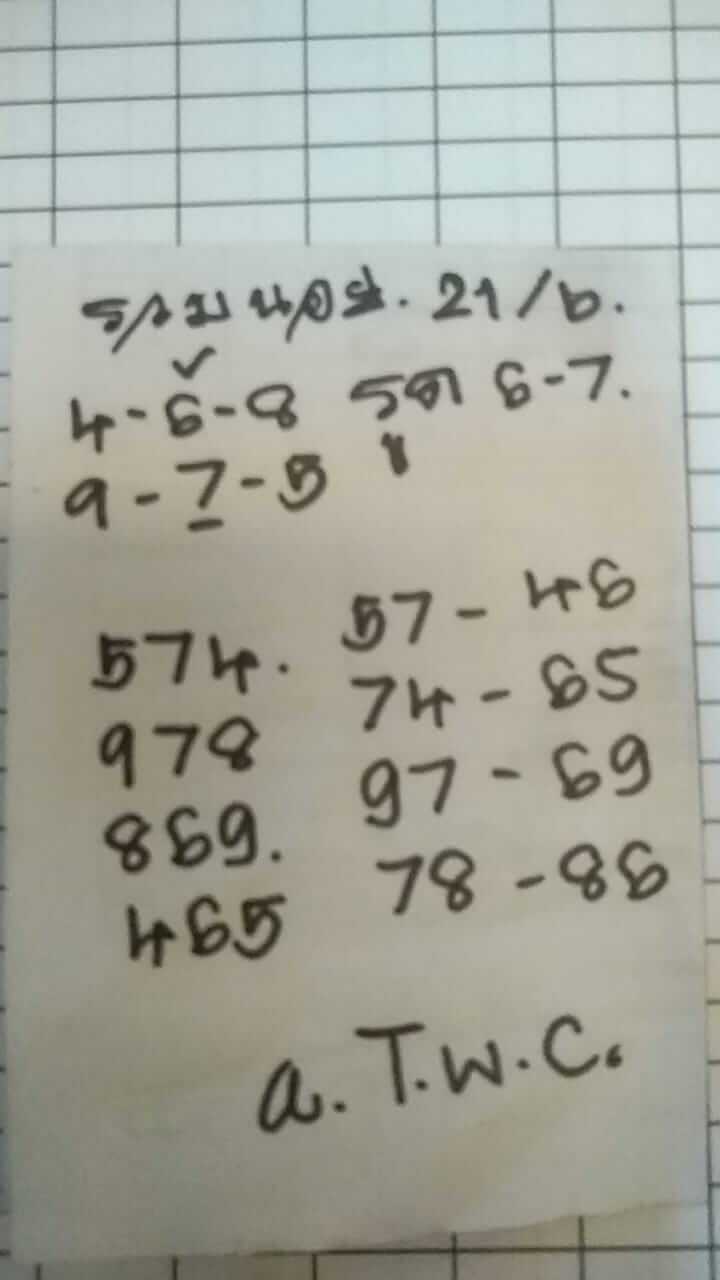 รวม นอส. 21/6.
4-6-8 รูด 6-7.
9-7-5
574. 57-46
978 74-65
869. 97-69
465 78-86
a.T.W.C.